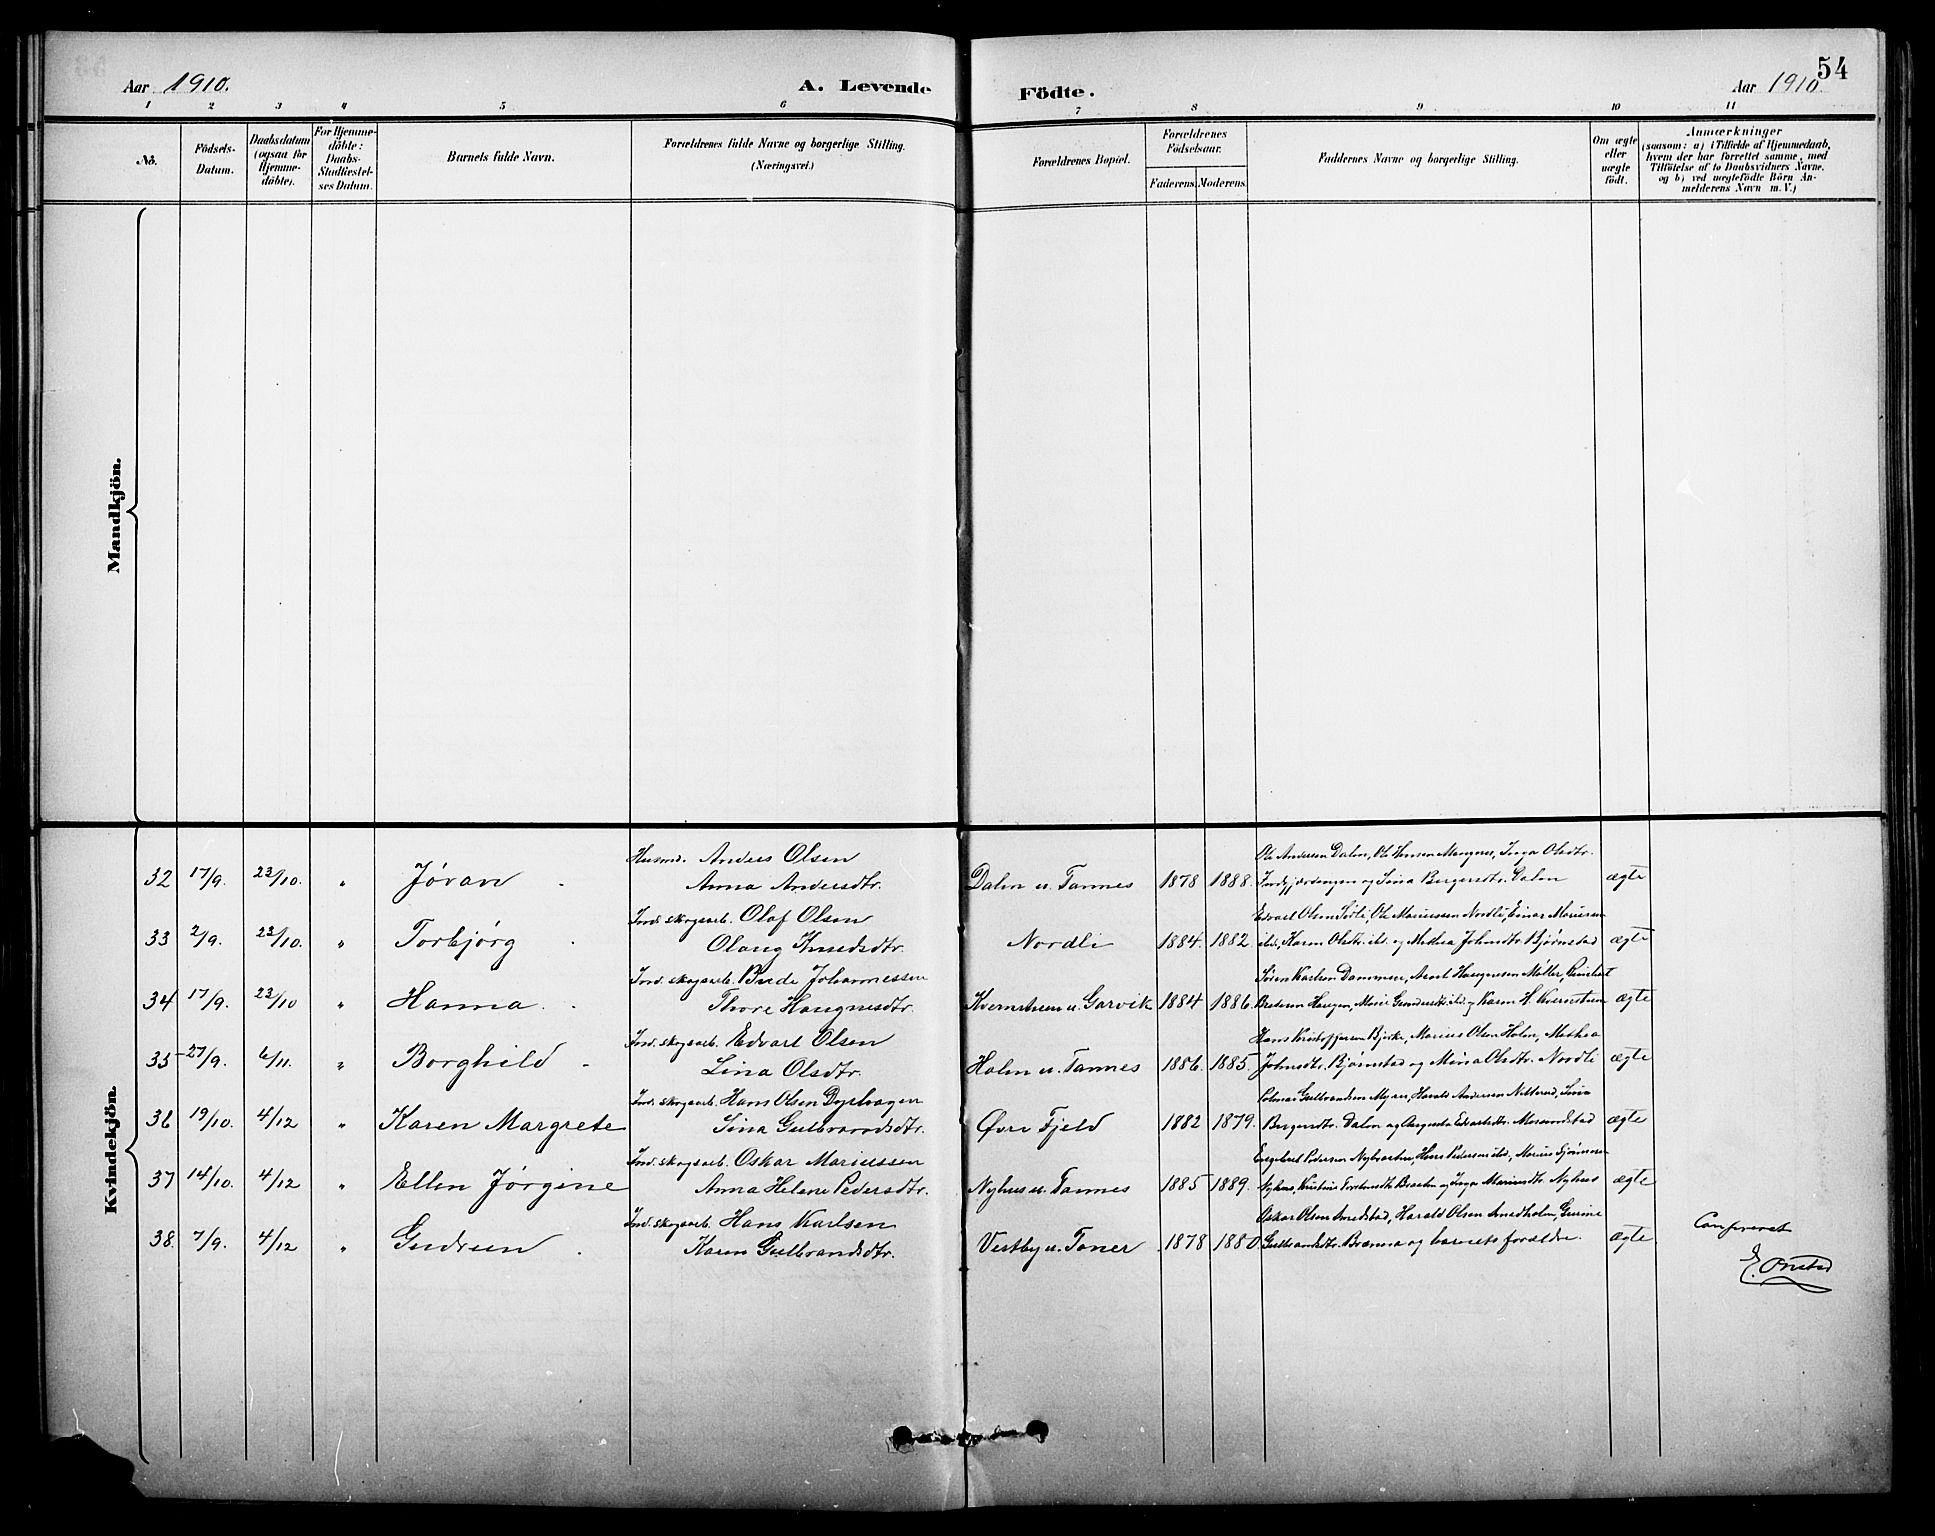 54
Aar 1910.
A. Levende
Födte.
Aar 1910
1 2 3 4 5 6 7 8 9 10 11
No.
Födsels-
Datum.
Daabsdatum
(ogsaa for
Hjemme-
döbte).
For Hjemme-
döbte:
Daabs-
Stadfæstel-
ses Datum.
Barnets fulde Navn.
Forældrenes fulde Navne og borgerlige Stilling.
(Næringsvei.)
Forældrenes Bopæl.
Forældrenes
Födselsaar.
Faderens. Moderens.
Faddernes Navne og borgerlige Stilling.
Om ægte
eller
uægte
födt.
Anmærkninger
(saasom: a) i Tilfælde af Hjemmedaab,
hvem der har forrettet samme, med
Tilföielse af to Daabsvidners Navne,
og b) ved uægtefödte Börn An-
melderens Navn m. V.)
Mandkjön.
Kvindekjön.
Husmd. Anders Olsen Ole Andersen Dalen, Ole Hansen Mangnes, Inga Olsdtr.
32 17/9. 23/10. " Jøran Anna Andersdtr. Dalen u. Tannes 1878 1888. og Lina Bergersdtr. Dalen ægte
Ind. skogsarb. Olaf Olsen Edvart Olsen Sødli, Ole Mariussen Nordli, Einar Mariussen
33 2/9. 23/10. " Torbjørg Olaug Knudsdtr. Nordli 1884. 1882. ibd, Karen Olsdtr. ibd. og Mathea Johnsdtr. Bjørnstad ægte
Ind. skogsarb. Brede Johannessen Søren Karlsen Dammen, Arnt Haagensen Møller, Reinhart
34 17/9. 23/10 " Hanna Thore Haagnesdtr. Kvernstuen u. Garvik 1884 1886. Bredesen Haugen, Marie Gundersdtr. ibd og Karen H. Kvernstuen ægte
Ind. skogsarb. Edvart Olsen Hans Kristoffersen Bjerke, Marius Olsen Holen, Mathea
35 27/9. 6/11. " Borghild Lina Olsdtr. Holen u. Tannes 1886. 1885. Johnsdtr. Bjørnstad og Mina Olsdtr. Nordli ægte
Ind. skogsarb. Hans Olsen Dyrhagen Gulbrandsen Myren, Harald Andersen Nitterud, Lina
36 19/10. 4/12 " Karen Margrete Lina Gulbrandsdtr. Øvre Fjeld 1882 1879. Bergersdtr. Dalen og Augusta Edvartsdtr. Morundstad ægte
Ind. skogsarb. Oskar Mariussen Engebret Pedersen Nybraaten, Hans Pedersen ibd, Marius
37 14/10. 4/12 " Ellen Jørgine Anna Helene Pedersdtr. Nyhus u. Tannes 1885 1889. Nyhus, Kristine Braaten og Inga Mariusdtr. Nyhus ægte
Ind. skogsarb. Hans Karlsen Oskar Olsen Amdstad, Harald Olsen Amdholm, Gurine
38. 7/9. 4/12 " Gudrun Karen Gulbrandsdtr. Vestby u. Toner 1878 1880. Gulbrandsdtr. Brænna og barnets forældre. ægte
Confereret
E. Onstad